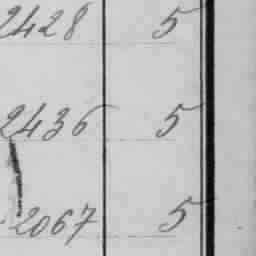 2428 5
2436 5
2067 5